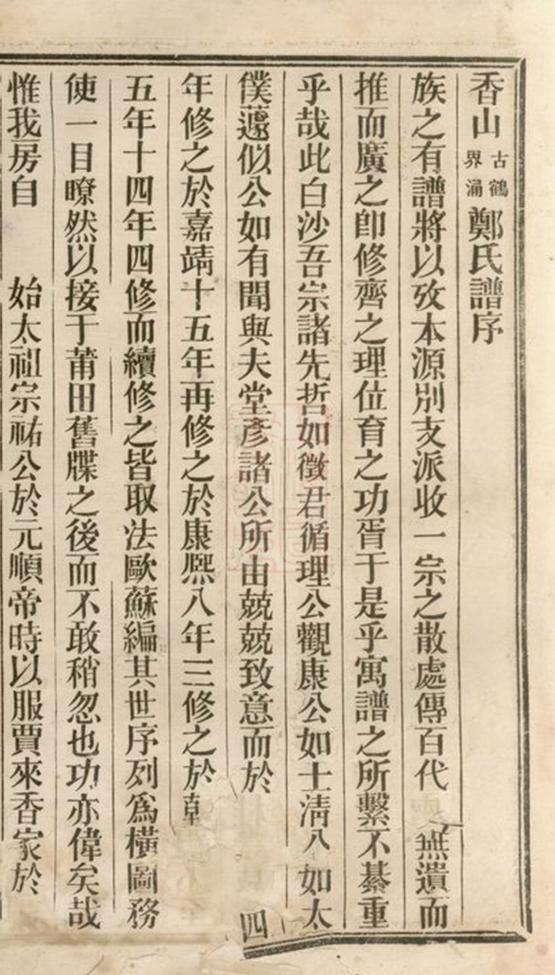 香山古鶴界涌鄭氏譜序
族之有譜將以攷本源別支派收一宗之散處傳百代 無遺而
推而廣之卽修齊之理位育之功胥于是乎寓譜之所繫不綦重
乎哉此白沙吾宗諸先哲如徵君循理公觀康公如士淸公如太
僕蘧似公如有聞與夫堂彥諸公所由兢兢致意而於
年修之於嘉靖十五年再修之於康熙八年三修之於
五年十四年四修而續修之皆取法歐蘇編其世序列爲橫圖務
使一目瞭然以接于莆田舊牒之後而不敢稍忽也功亦偉矣哉
惟我房自 始太祖宗祐公於元順帝時以服賈來香家於
四